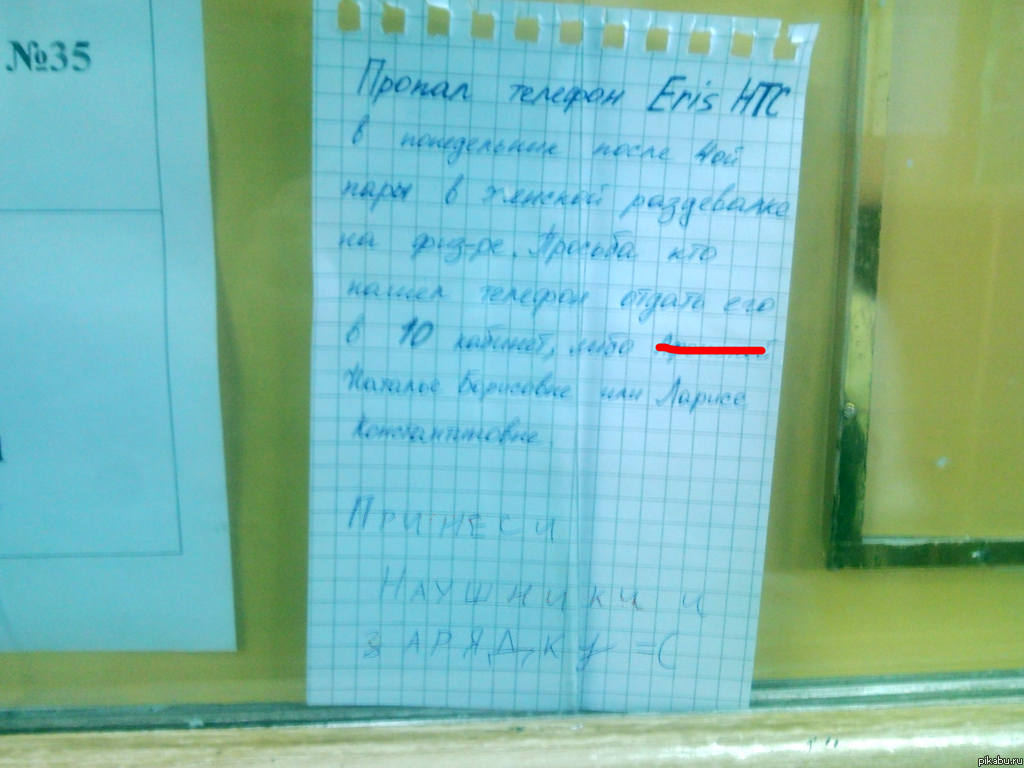 №35
Пропал телефон Eris HTC
в понедельник после 4ой
пары в женской раздевалке
на физ-ре. Просьба кто
нашел телефон отдать его
в 10 кабинет, либо
Наталье Борисовне или Ларисе
Константиновне.
ПРИНЕСИ
НАУШНИКИ И
ЗАРЯДКУ =(
pikabu.ru